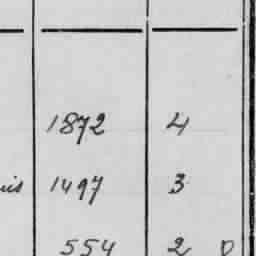 1872 4
1497 3
554 2